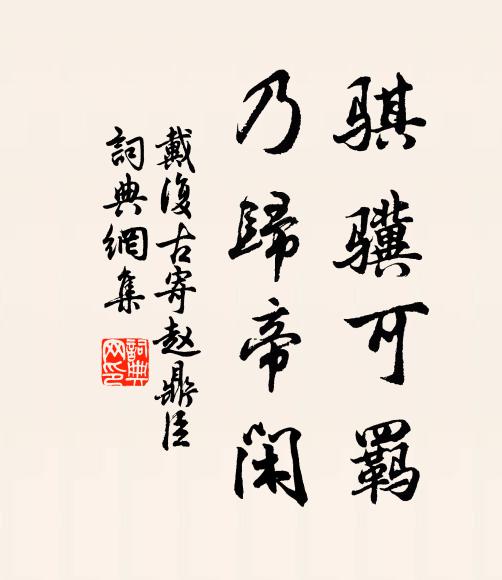 骐骥可羁
乃歸帝闲
戴復古寄赵鼎臣
詞典網集
詞典網印